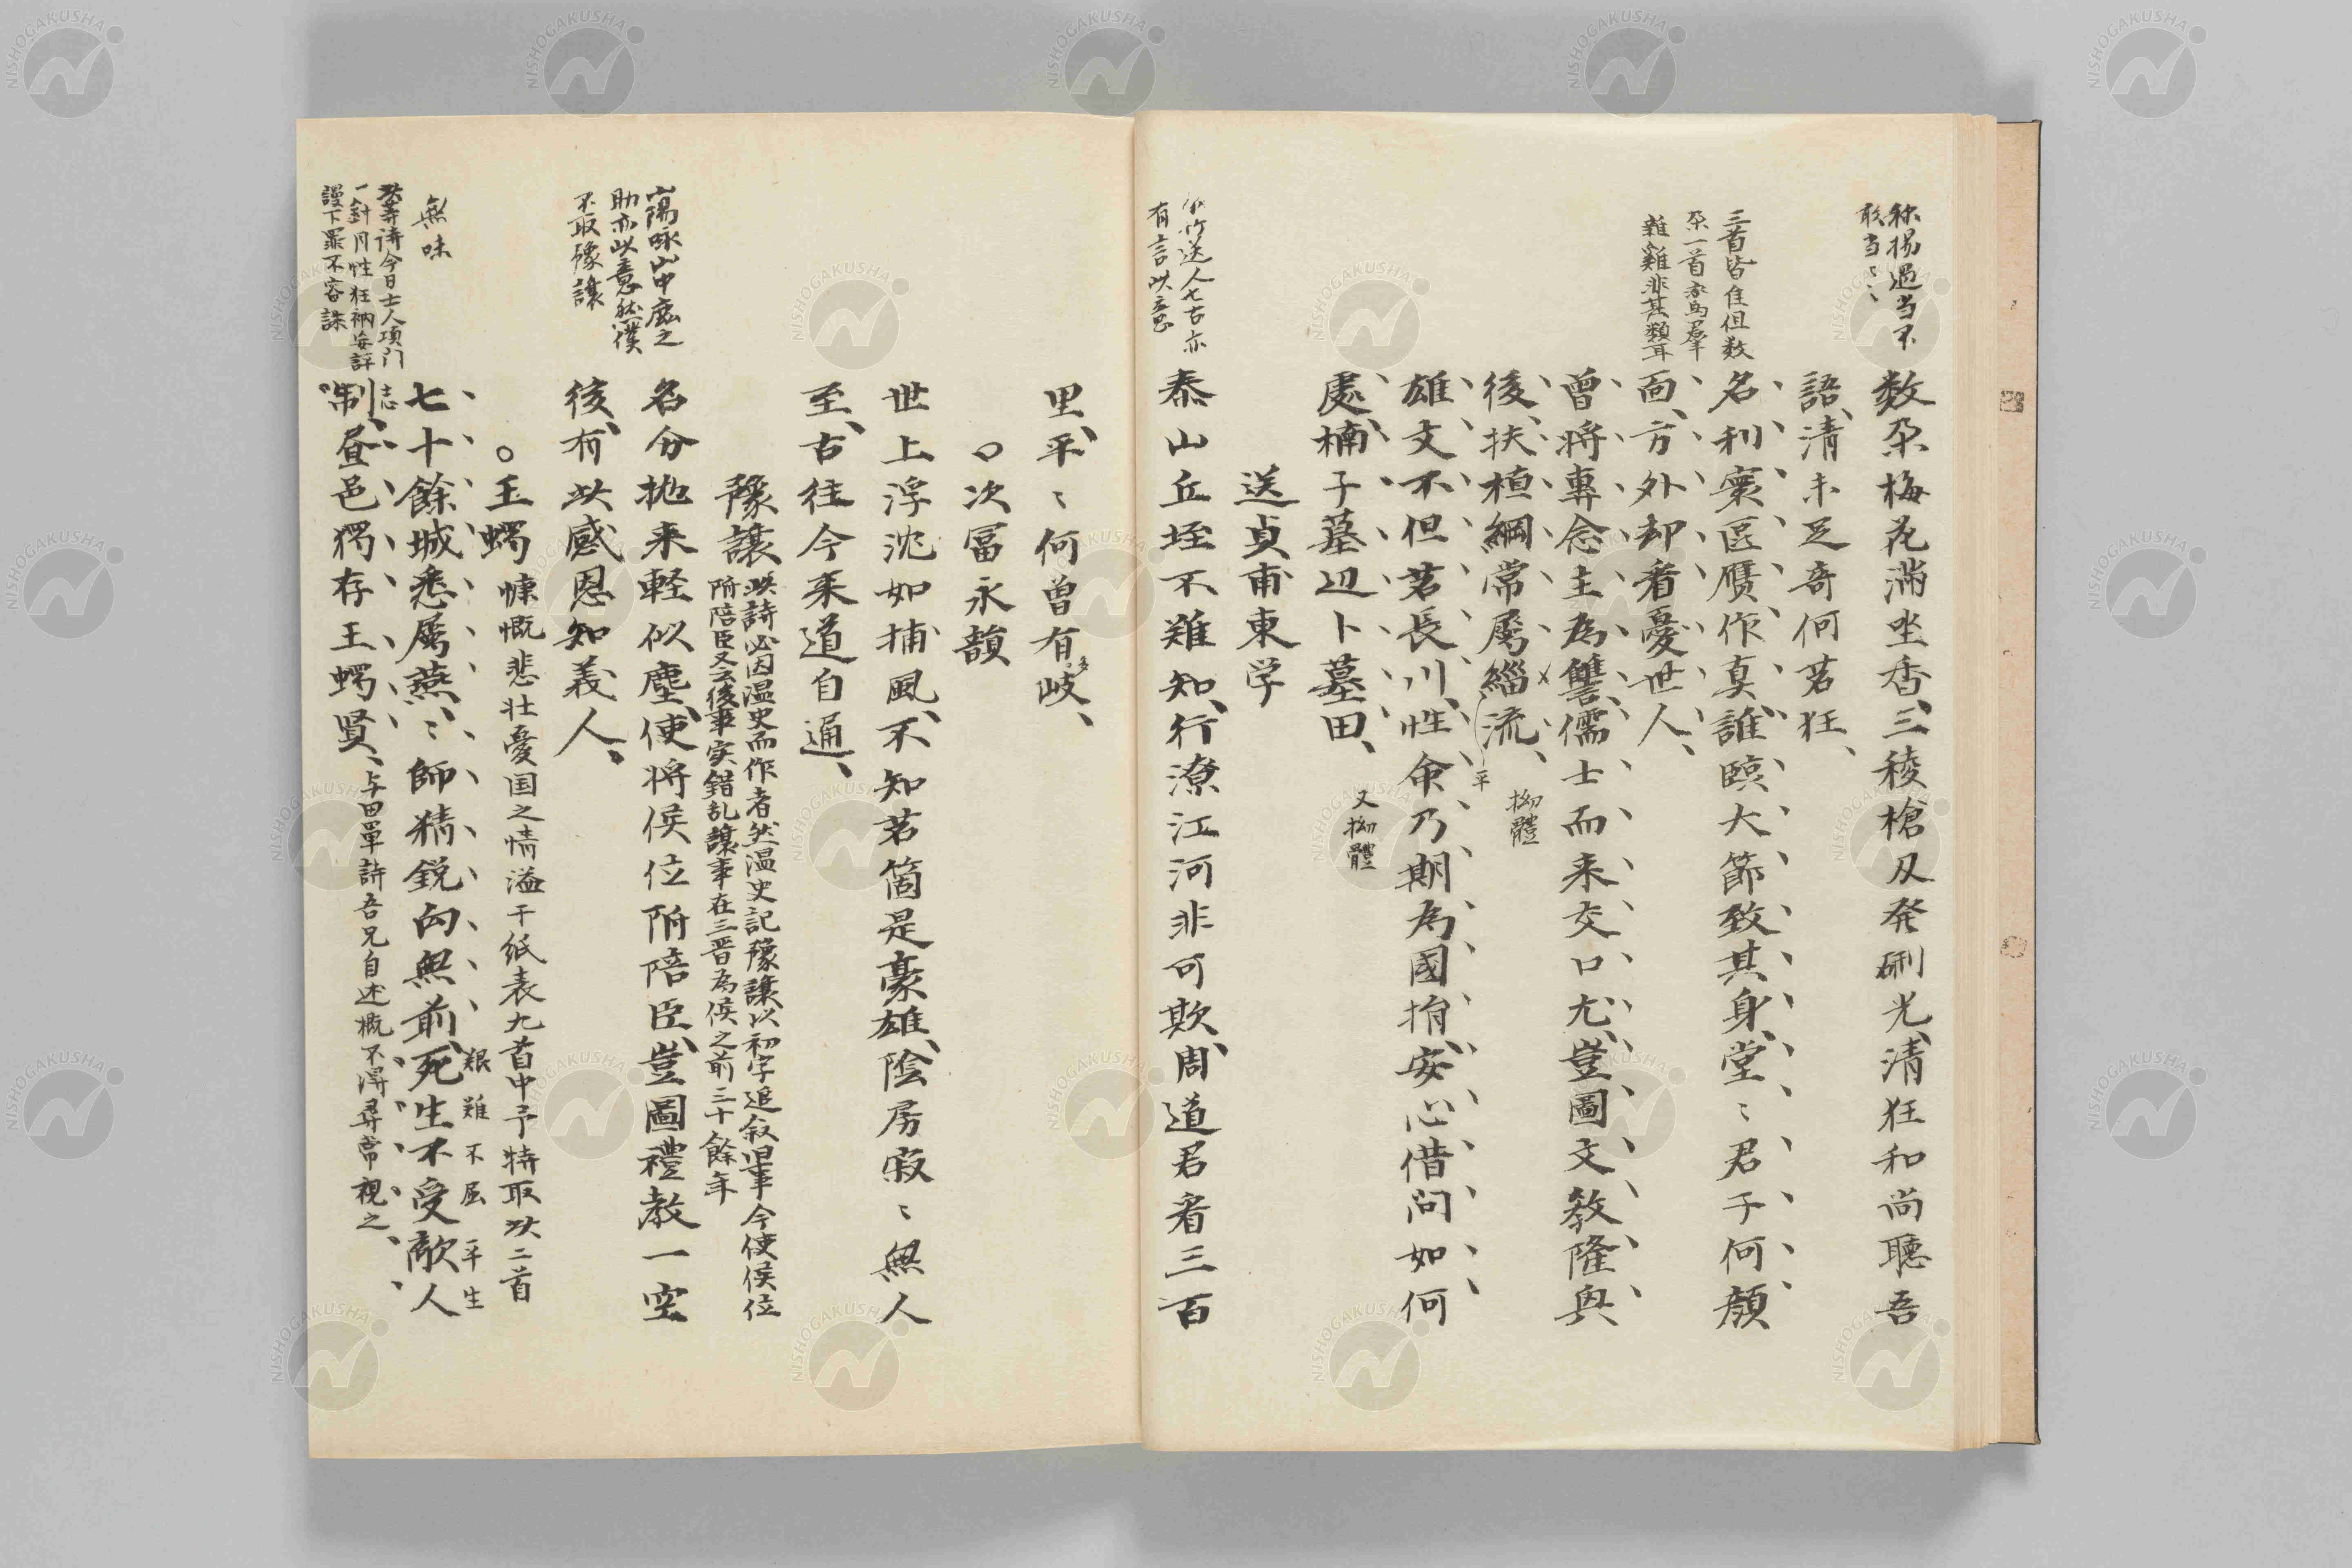 称揚過当不
敢当〻〻
数朶梅花満坐香、三稜槍刃発硎光、清狂和尚聴吾
語、清未足奇何若狂、
三首皆佳但数
朶一首為羣
雞非其類耳
名利寰区贋作真、誰臨大節致其身、堂〻君子何顔
面、方外却看憂世人、
曽将専念主為讐、儒士而来交口尤、豈図文教隆興
後、扶植綱常属緇流、
平
拗體
雄文不但若長川、性命乃期為國捐、安心借問如何
處、楠子墓辺卜墓田、
又拗體
送貞甫東学
竹送人七古亦
有言此意
泰山丘垤不難知、行潦江河非可欺、周道君看三百
里、平〻何曽有岐、
多
○次冨永韻
世上浮沈如捕風、不知若箇是豪雄、陰房寂〻無人
至、古往今来道自通、
豫讓
此詩必因温史而作者然温史記豫讓以初字追叙旧事今使侯位
附陪臣又云後事実錯乱讓事在三晋為侯之前三十餘年
山陽咏山中鹿之
助亦此意然僕
不取豫讓
名分抛来軽似塵、使将侯位附陪臣、豈圖禮教一空
後、有此感恩知義人、
○王蠋
慷慨悲壮憂国之情溢于紙表九首中予特取此二首
無味
七十餘城悉属燕、〻師精鋭向無前、死生不受敵人
艱難不屈平生
志
制、昼邑獨存王蠋賢、
与田單詩吾兄自述概不得尋常視之、
此等詩今日士人項门
一針月性狂衲妄評
謾下罪不容誅